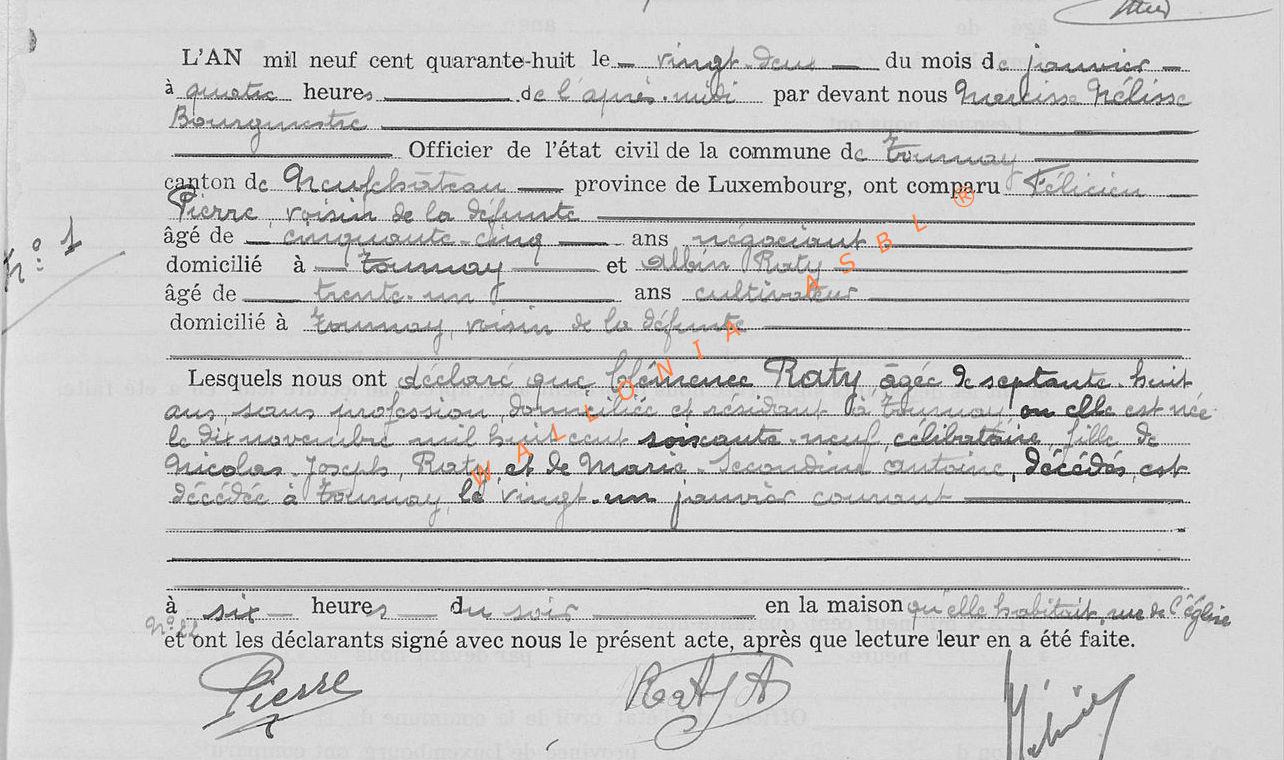 L'AN mil neuf cent quarante-huit le vingt-deux du mois de janvier
à quatre heures de l'après-midi par devant nous Nélisse
Bourgmestre
Officier de l'état civil de la commune de Tournay
canton de Neufchâteau province de Luxembourg, ont comparu Félicien
Pierre, voisin de la défunte
N° 1
âgé de cinquante-cinq ans négociant
domicilié à Tournay et Albin Raty
âgé de trente-un ans cultivateur
domicilié à Tournay, voisin de la défunte
Lesquels nous ont déclaré que Clémence Raty âgée de septante-huit
ans, sans profession, domiciliée et résidant à Tournay, où elle est née
le dix novembre mil huit cent soixante-neuf, célibataire, fille de
Nicolas-Joseph Raty et de Marie-Secondine Antoine, décédés, est
décédée à Tournay, le vingt-un janvier courant
à six heures du soir en la maison qu'elle habitait, rue de l'église
et ont les déclarants signé avec nous le présent acte, après que lecture leur en a été faite.
Pierre Raty A
WALLONIA ASBL ®